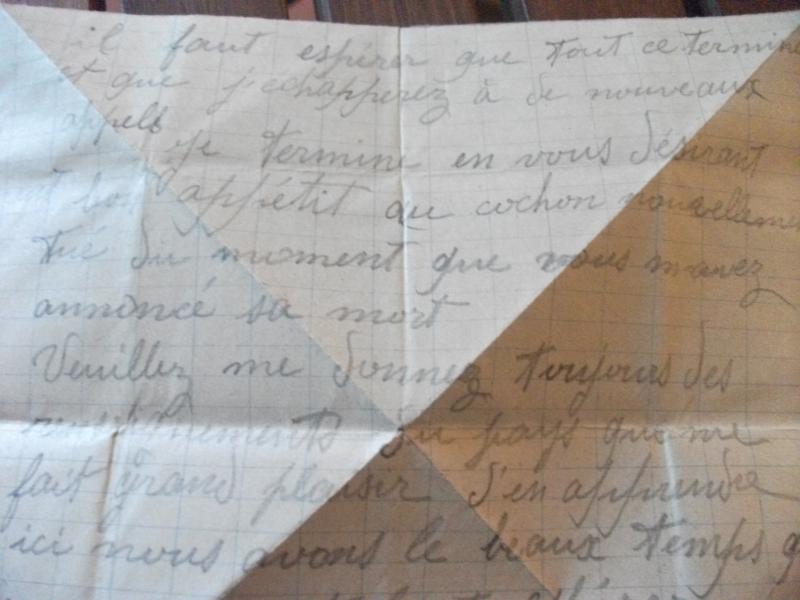 il faut espérer que tout ce termine
et que j'echapperez à de nouveaux
appels
je termine en vous désirant
bon appétit au cochon nouvelleme
tué du moment que vous mavez
annoncé sa mort
Veuillez me donnez toujours des
renseignements du pays qui me
fait grand plaisir d'en apprendre
ici nous avons le beaux temps